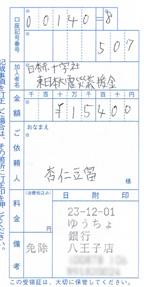 口座記号番号
00140=8
507
加入者名
日本赤十字社
東日本大震災義援金
金額
千 百 十 万 千 百 十 円
¥15400
ご依頼人
おなまえ
杏仁豆腐
様
料金
(消費税込み)
円
日附印
23-12-01
ゆうちょ
銀行
八王子店
備考
免除
この受領証は、大切に保管してください。